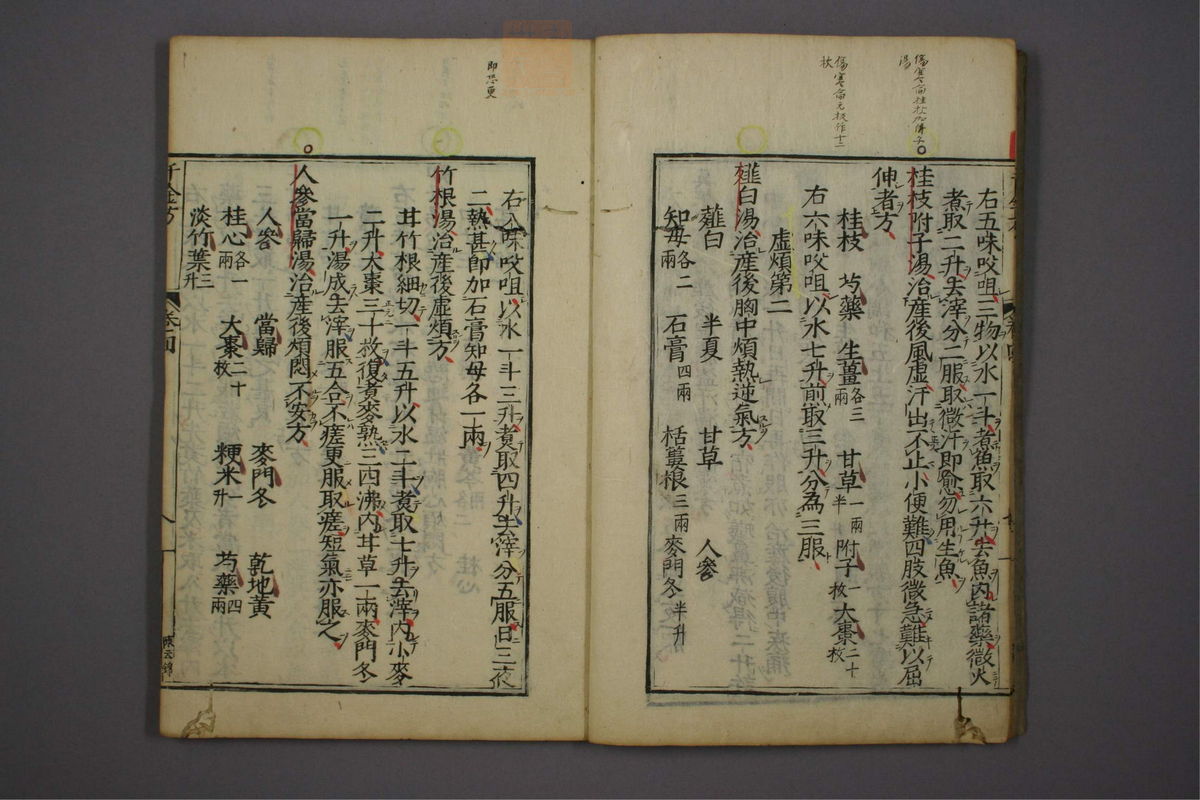 傷寒論桂枝加附子
湯
傷寒論大枝作十二
枚
右五味㕮咀三物以水一斗煮魚取六升去魚内諸藥微火
煮取二升去滓分二服取微汗即愈勿用生魚
桂枝附子湯治産後風虚汗出不止小便難四肢微急難以屈
伸者方
桂枝 芍藥 生薑各三兩 甘草一兩半 附子一枚 大棗二十枚
右六味㕮咀以水七升煎取三升分為三服
虚煩第二
薤白湯治産後胸中煩熱逆氣方
薤白 半夏 甘草 人參
知母各二兩 石膏四兩 栝蔞根三兩 麥門冬半升
即悲更
右八味㕮咀以水一斗三升煮取四升去滓分五服日三夜
二熱甚即加石膏知母各一兩
竹根湯治産後虚煩方
甘竹根細切一斗五升以水二斗煮取七升去滓内小麥
二升大棗三十枚復煮麥熟三四沸内甘草一兩麥門冬
一升湯成去滓服五合不瘥更服取瘥短氣亦服之
人參當歸湯治産後煩悶不安方
人參 當歸 麥門冬 乾地黃
桂心各一兩 大棗二十枚 粳米一升 芍藥四兩
淡竹葉三升
千金方 卷四